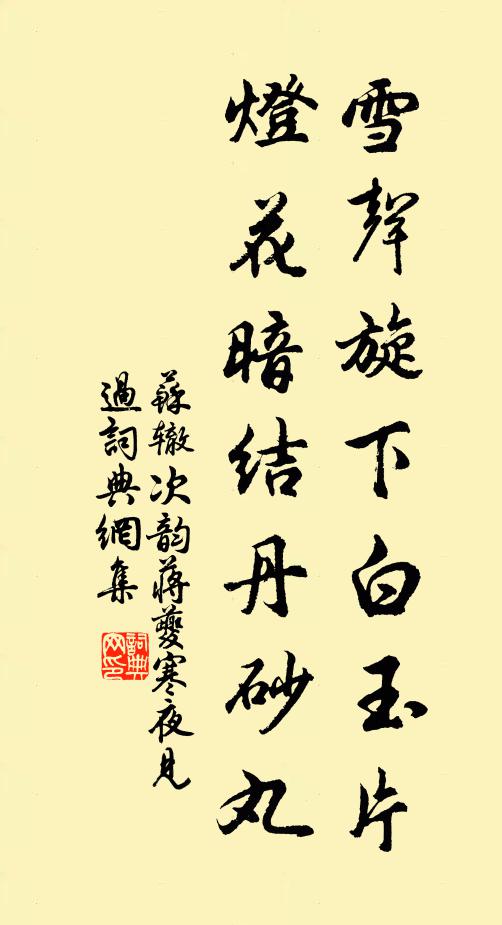 雪聲旋下白玉片
燈花暗結丹砂丸
蘇轍次韵蔣夔寒夜見
過詞典網集
詞典
网印